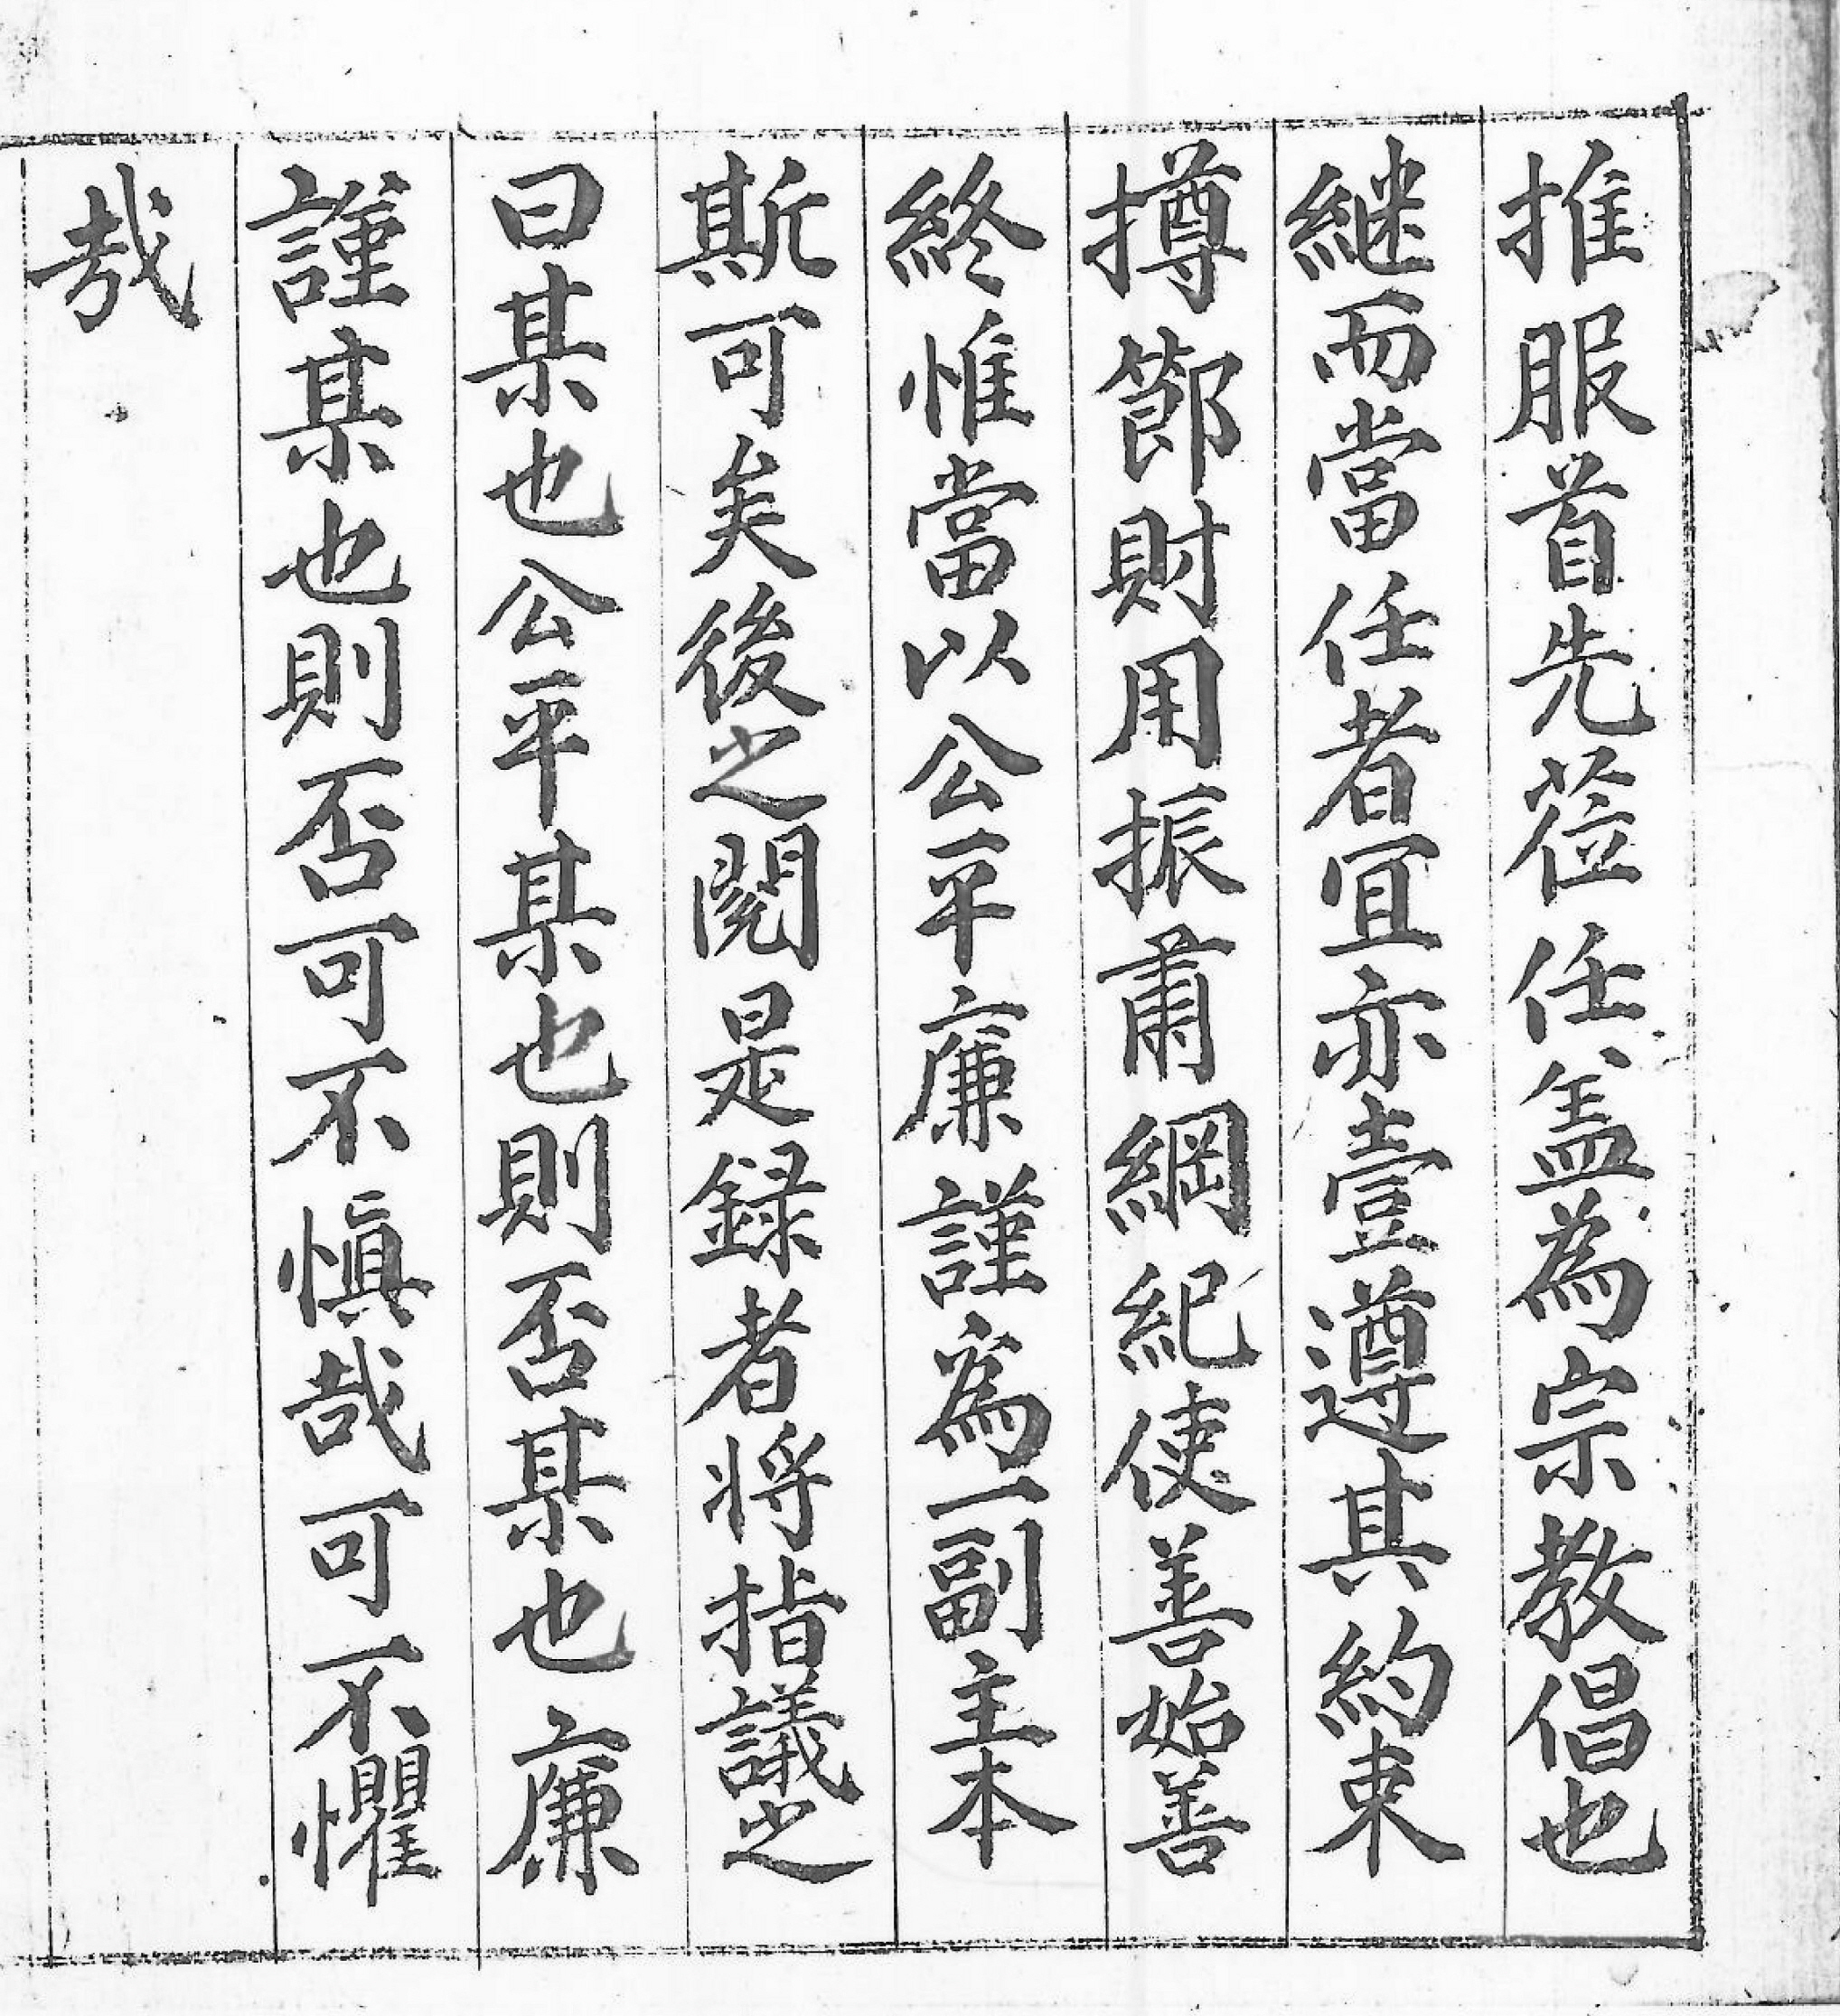 推服首先莅任盖為宗教倡也
継而當任者宜亦壹遵其約束
撙節財用振肅綱紀使善始善
終惟當以公平廉謹為一副主本
斯可矣後之閱是録者將指議之
曰某也公平某也則否某也廉
謹某也則否可不慎哉可不懼
哉